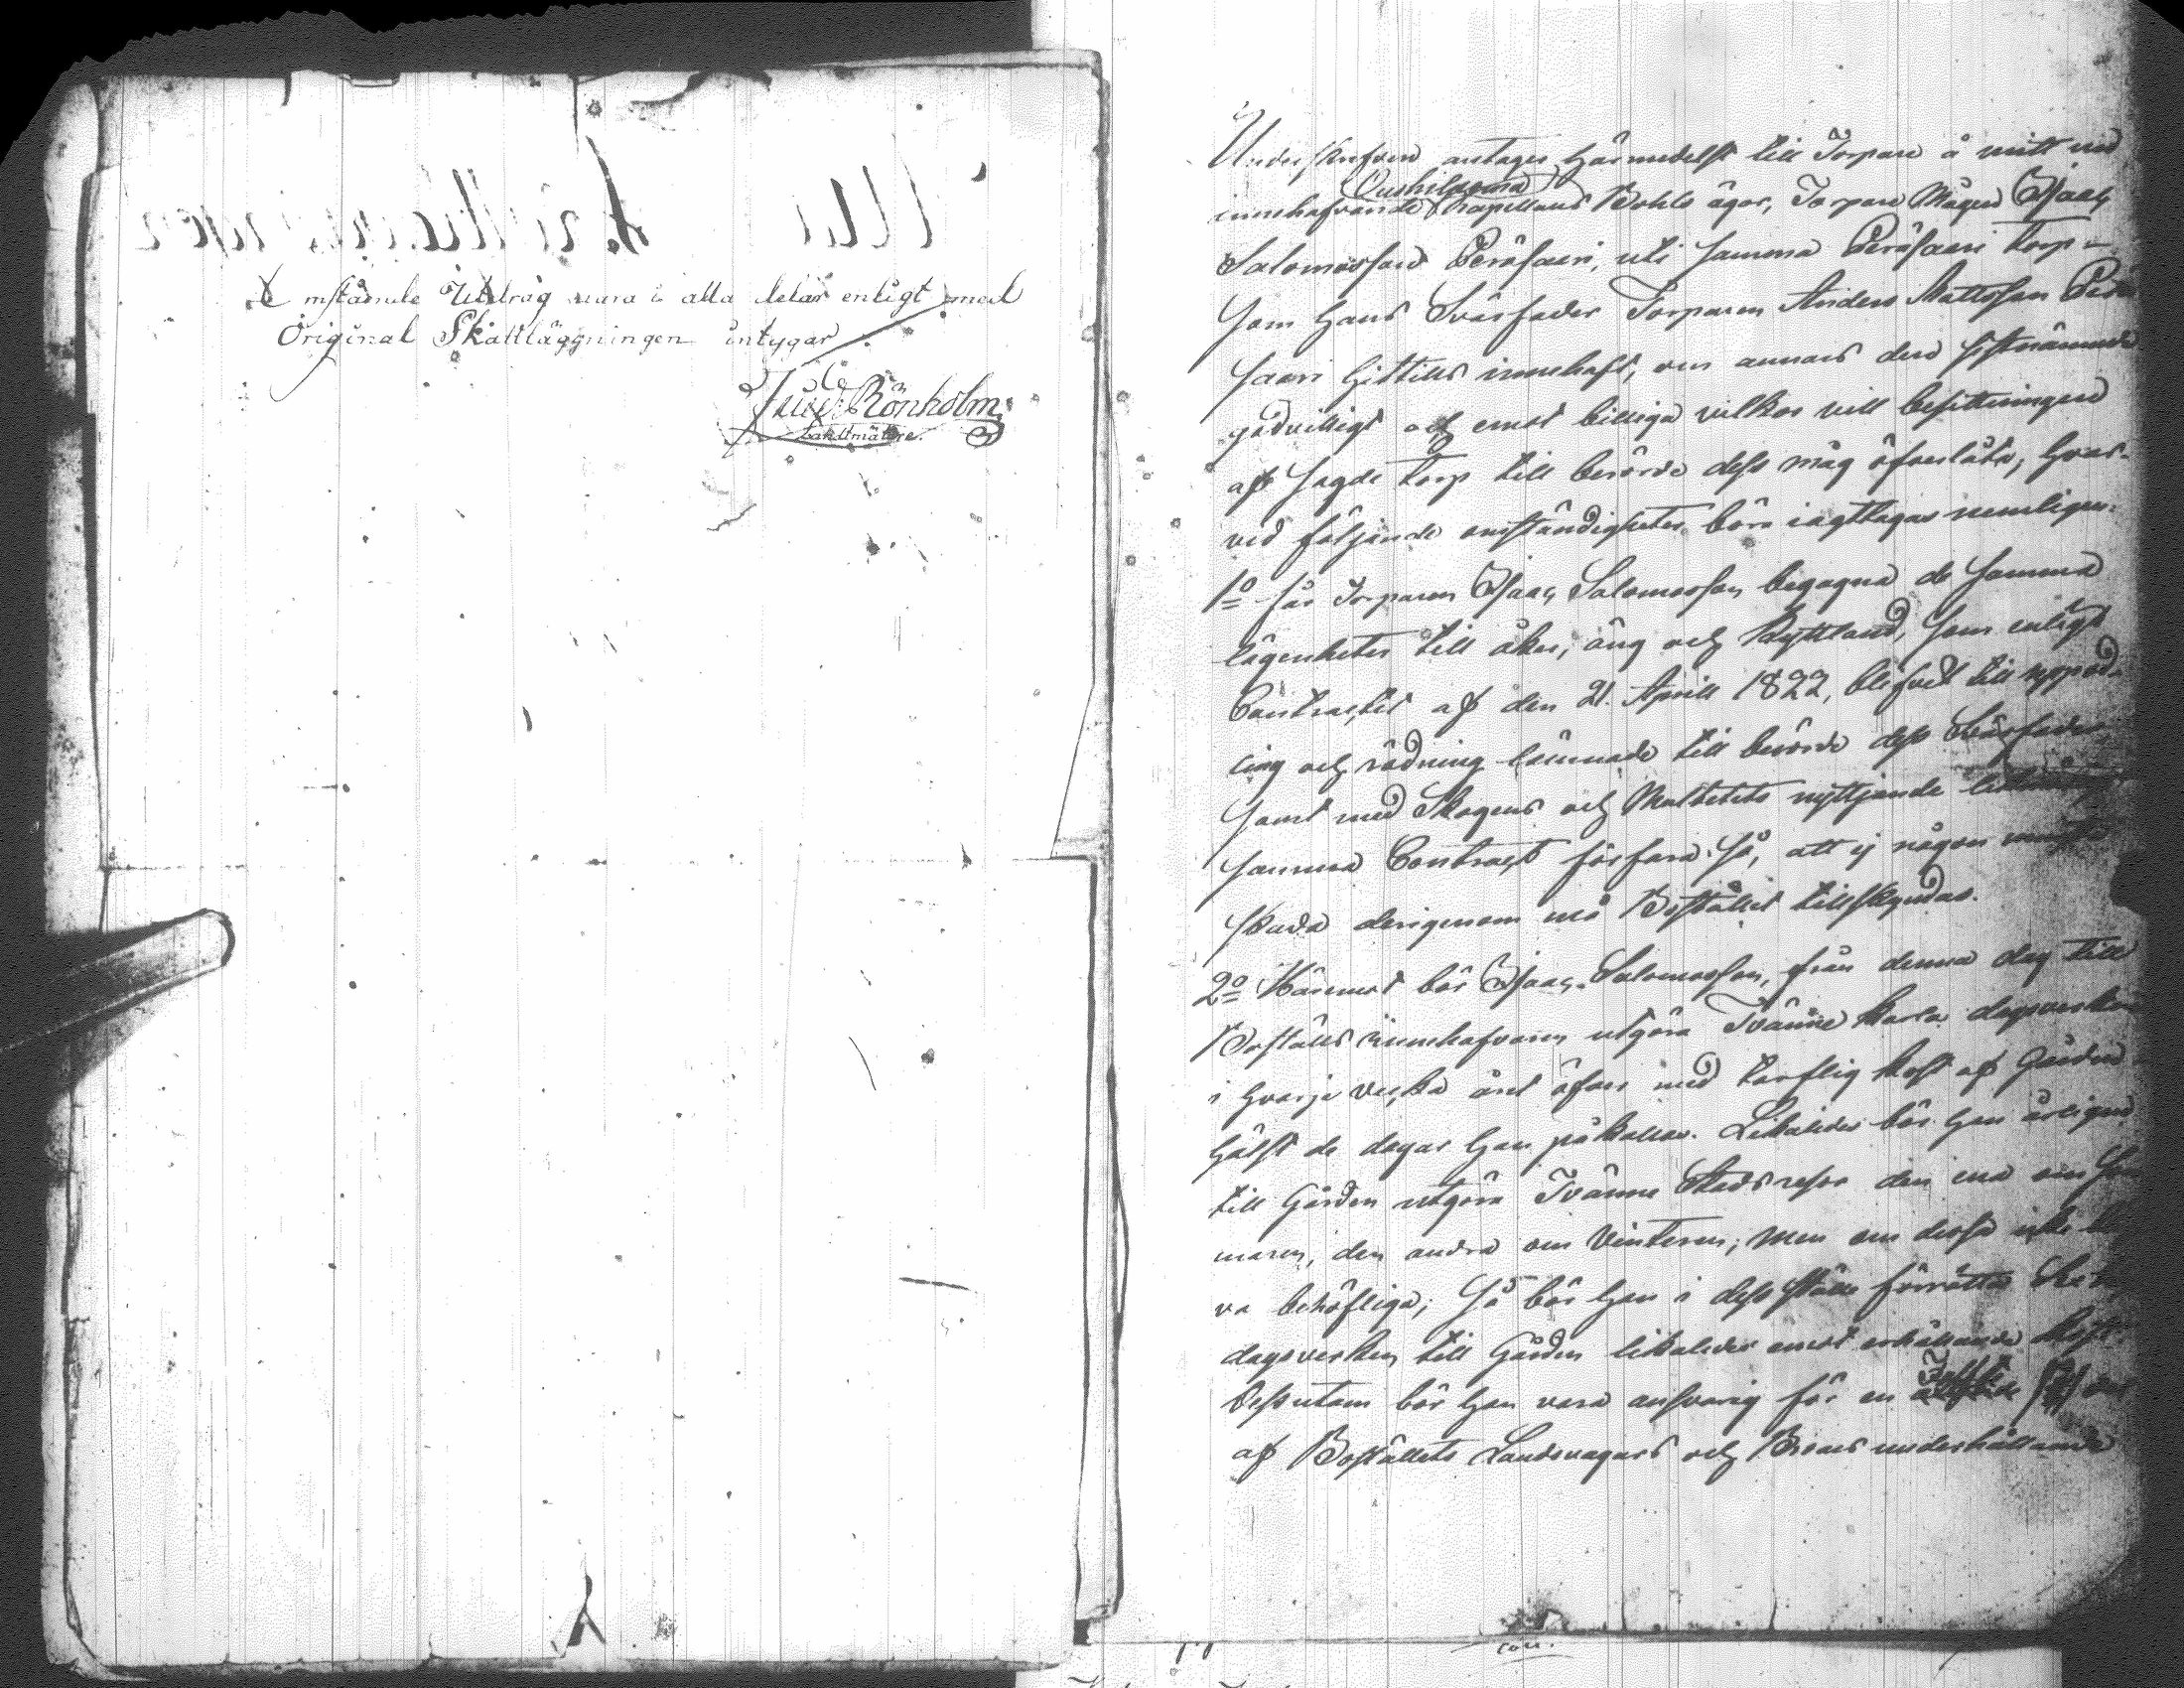 Omstående Utdrag vara i alla delar enligt med
Original Skattläggningen intygar
Rönholm
Landtmätare.
Underskrefven antager härmedelst till Torpare å mitt
Ouskiloma
innehafvande Kapellans Bohls ägor, Torpare Mågen Isaac
Salomosson Peräsaari, uti samma Peräsaari torp
som hans Svärfader Torparen Anders Mattsson Perä
saari hittills innehaft, om annars den sistnämnde
godvilligt och emot billiga vilkor vill besittningen
af sagde torp till berörde dess måg öfverlåta, hvar-
vid följande omständigheter böra iagttagas nemligen:
1o får Torparen Isaac Salomosson begagna de samma
lägenheter till åker, äng och Svettland, som enligt
Contractet af den 21. Aprill 1822, blifvit till uppod-
ling och rödning lemnade till berörde dess Svärfader,
samt med Skogens och Mulbetets nyttjande
samma Contract förfara så, att ej någon minsta
skada derigenom må Bostället tillskyndas.
2o Häremot bör Isaac Salomosson, från denna dag till
Boställs innehafvaren utgöra Tvänne karla dagsverken
i hvarje vecka året öfver med tarflig kost af Gården
hälst de dagar han påkallas. Likaledes bör han årligen
till Gården utgöra Tvänne Stads resor den ena om Som
maren, den andra om Vinteren; men om dessa icke bli
va behöfliga; så bör han i dess ställe förrätta
dagsverken till Gården likaledes emot erhållande kost.
Dessutom bör han vara ansvarig för en
af Boställets Landsvägars och Broars underhållande